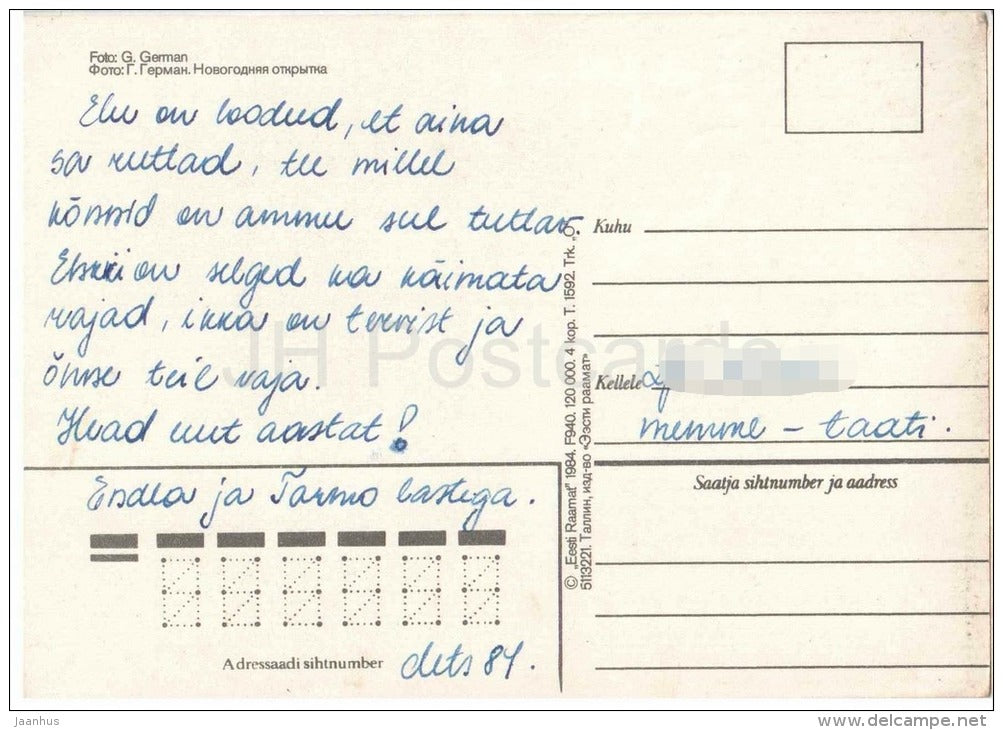 Foto: G. German
Фото: Г. Герман. Новогодняя открытка
Elu on loodud, et aina
sa ruttad, tee millel
kõnnid on ammu sul tuttav.
Ehkki on selged ka käimata
rajad, ikka on tervist ja
õnne teil vaja.
Head uut aastat!
Endla ja Tarmo lastega.
Adressaadi sihtnumber
dets 84.
© „Eesti Raamat" 1984. F940. 120 000. 4 kop. T. 1592. Trk. „O
5113221. Таллин, изд-во «Ээсти раамат»
Kuhu
Kellele
memme - taati.
Saatja sihtnumber ja aadress
JH Postcards
jaanhus
www.delcampe.net